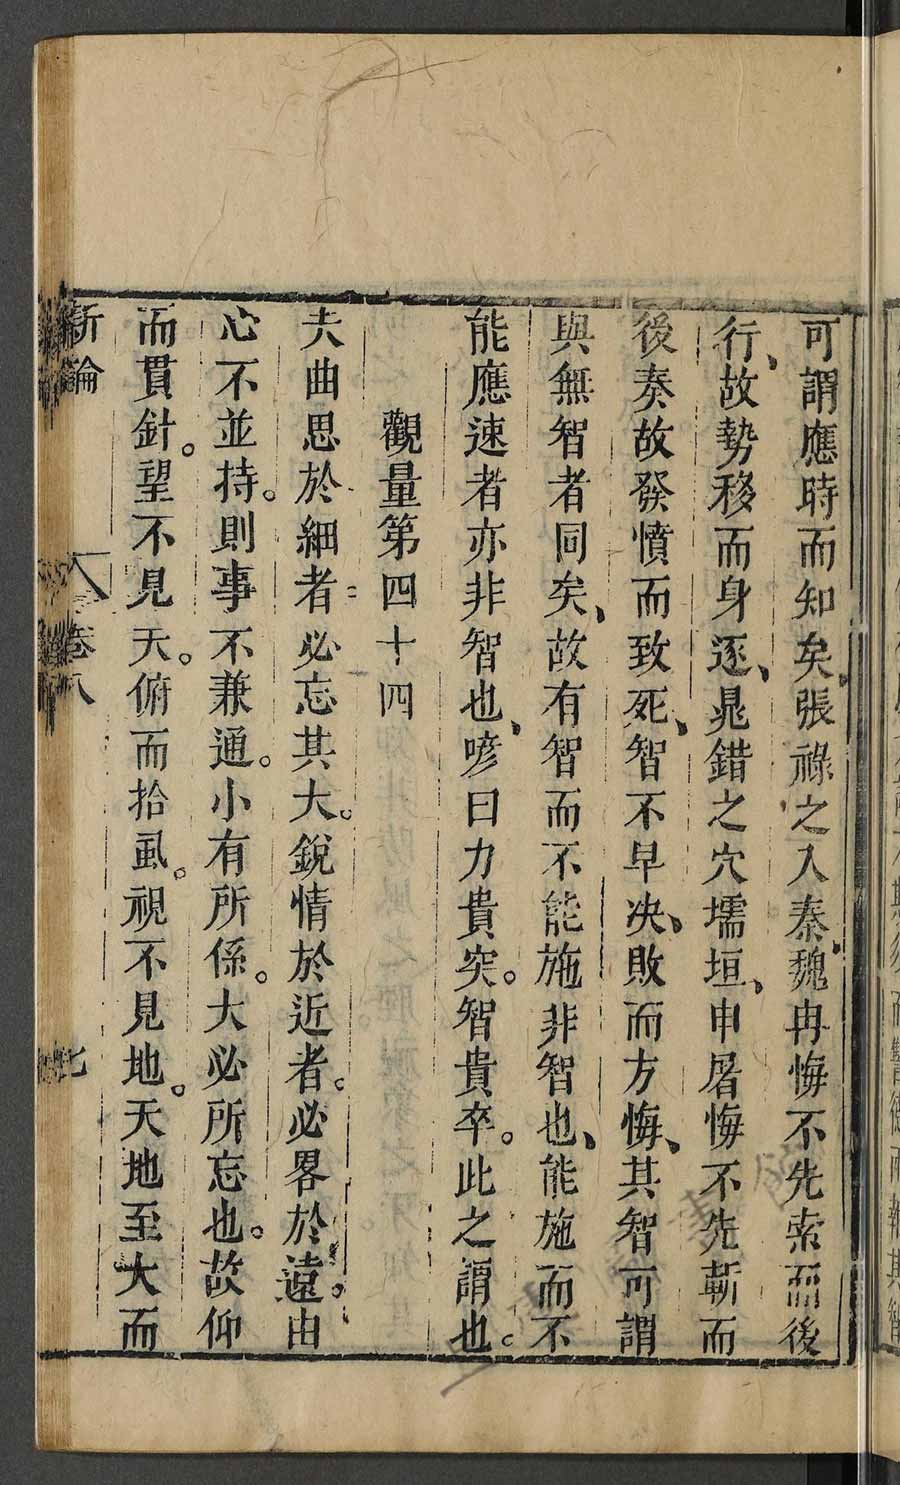 可謂應時而知矣、張祿之入秦、魏冉悔不先索而後
行、故勢移而身逐、晁錯之穴壖垣、申屠悔不先斬而
後奏故發憤而致死、智不早决、敗而方悔、其智可謂
與無智者同矣、故有智而不能施非智也、能施而不
能應速者亦非智也、喭曰力貴突。智貴卒。此之謂也。
觀量第四十四
夫曲思於細者必忘其大。銳情於近者。必畧於遠。由
心不並持。則事不兼通。小有所係。大必所忘也。故仰
而貫針。望不見天。俯而拾虱。視不見地。天地至大而
新論
卷八
七